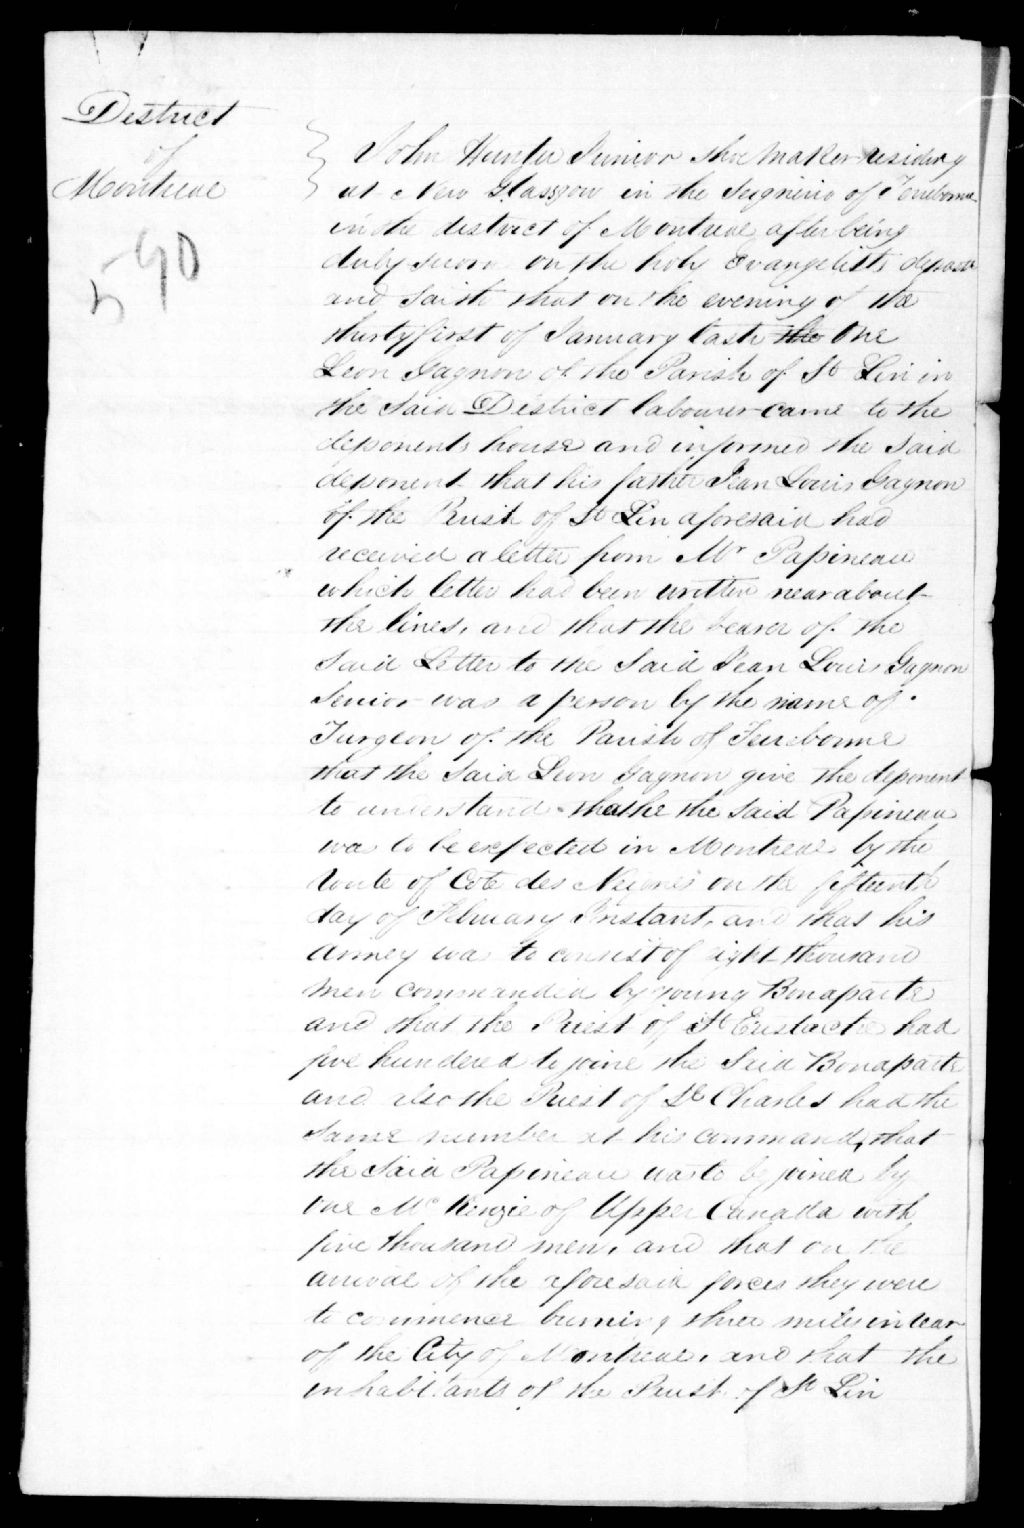 District
of
Montreal
590
John Hunter Junior shoemaker residing
at New Glasgow in the Seignirio of Terrebonne
in the district of Montreal after being
duly sworn on the holy Evangelists deposeth
and saith that on the evening of the
thirtyfirst of January last the One
Leon Gagnon of the Parish of St Lin in
the said District labourer came to the
deponents house and informed the said
deponent that his father Jean Louis Gagnon
of the Parish of St Lin aforesaid had
received a letter from Mr Papineau
which letter had been written near about
the lines, and that the bearer of the
said Letter to the said Jean Louis Gagnon
Senior was a person by the name of
Turgeon of the Parish of Terrebonne
that the said Leon Gagnon give the deponent
to understand that he the said Papineau
was to be expected in Montreal by the
route of Cote des Neiges on the fifteenth
day of February Instant, and that his
armey was to consist of eight thousand
men commanded by young Bonaparte
and that the Priest of St Eustache had
five hundered to joine the said Bonaparte
and also the Priest of St Charles had the
same number at his command, that
the said Papineau was to be joined by
one McKenzie of Upper Canada with
five thousand men, and that on the
arrival of the aforesaid forces they were
to commence burning three miles in rear
of the City of Montreal, and that the
inhabitants of the Parish of St Lin